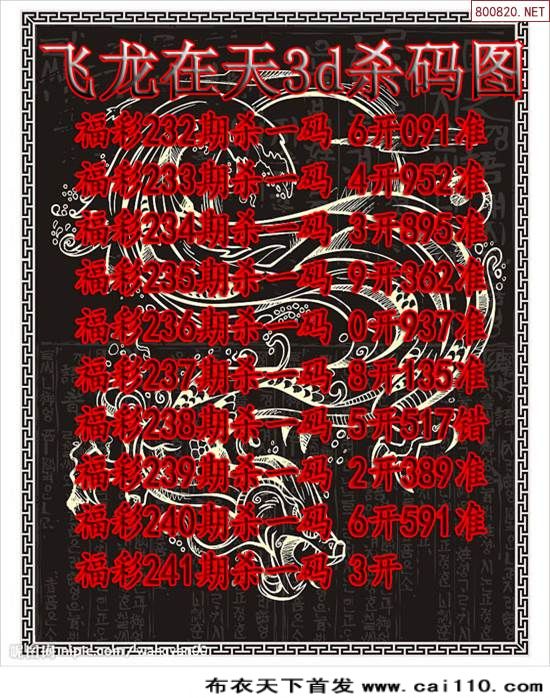 800820.NET
飞龙在天3d杀码图
福彩232期杀一码 6开091准
福彩233期杀一码 4开952准
福彩234期杀一码 3开895准
福彩235期杀一码 9开362准
福彩236期杀一码 0开937准
福彩237期杀一码 8开135准
福彩238期杀一码 5开517错
福彩239期杀一码 2开389准
福彩240期杀一码 6开591准
福彩241期杀一码 3开
布衣天下首发 www.cai110.com